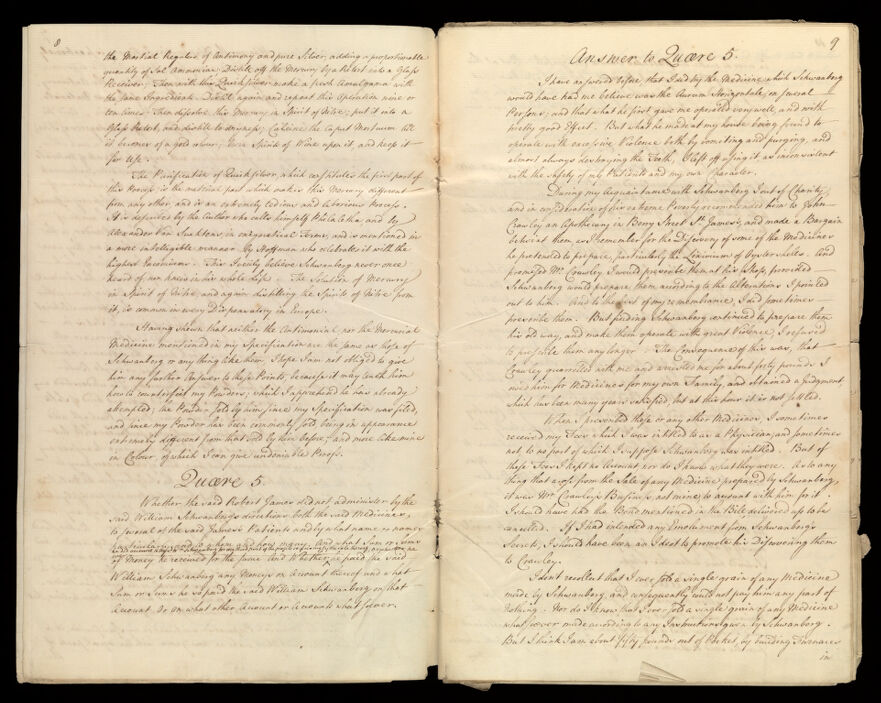 8
the Martial Regulus of Antimony and pure Silver, adding a proportionable
quantity of Sal Ammoniac. Distill off the Mercury by a Retort into a Glass
Receiver. Then with this Quicksilver make a fresh Amalgama with
the same Ingredients. Distill again and repeat this Operation nine or
ten times. Then dissolve this Mercury in Spirit of Nitre; put it into a
Glass Retort and distill to dryness; Calcine the Caput Mortuum till
it becomes of a gold colour; burn Spirits of Wine upon it, and keep it
for Use.
The Purification of Quicksilver, which constitutes the first part of
this Process, is the material part which makes this Mercury different
from any other, and is an extremely tedious and laborious Process.
It is described by the Author who calls himself Philaletha and by
Alexander Van Suchten, in enigmatical Terms, and is mentioned in
a more intelligible manner by Hoffman who celebrates it with the
highest Encomiums. This I verily believe Schwanberg never once
heard of nor knew in his whole Life. The Solution of Mercury
in Spirit of Nitre, and again distilling the Spirits of Nitre from
it, is common in every Dispensatory in Europe.
Having shewn that neither the Antimonial nor the Mercurial
Medicine mentioned in my Specification are the same as those of
Schwanberg or any thing like them. I hope I am not obliged to give
him any further Answer to these Points, because it may teach him
how to counterfeit my Powders; which I apprehend he has already
attempted; the Powder sold by him since my Specification was filed,
and since my Powder has been commonly sold being in appearance
extremely different from that sold by him before; and more like mine
in Colour, of which I can give undeniable Proofs.
Quære 5.
Whether the said Robert James did not administer by the
said William Schwanberg's directions both the said Medicines
to several of the said James's Patients and by what name or names
in particular and to whom and how many. And what Sum or Sums
of Money he received for the same And Whether he paid the said
William Schwanberg any Moneys on Account thereof and what
Sum or Sums he so paid the said William Schwanberg on that
Account Or on what other Account or Accounts whatsoever.
9
Answer to Quære 5.
I have answered before that I did try the Medicine which Schwanberg
would have had me believe was the Aurum Horizontale, on several
Persons; and that what he first gave me operated very well, and with
pretty good Effect. But what he made at my house being found to
operate with excessive Violence both by vomiting and purging, and
almost always destroying the Teeth, I left off using it, as inconsistent
with the Safety of my Patients and my own Character.
During my Acquaintance with Schwanberg I out of Charity,
and in consideration of his extreme Poverty recommended him to John
Crawley an Apothecary in Berry Street St. James's, and made a Bargain
between them, as I remember for the Discovery of some of the Medicines
he pretended to prepare, particularly the Lixivium of Oyster shells. And
promised Mr. Crawley I would prescribe them at his Shop, provided
Schwanberg would prepare them according to the Alterations I pointed
out to him. And to the best of my remembrance, I did sometimes
prescribe them. But finding Schwanberg continued to prepare them
his old way, and make them operate with great Violence, I refused
to prescribe them any longer. The Consequence of this was, that
Crawley quarrelled with me and arrested me for about forty pounds I
owed him for Medicines for my own Family, and obtained a judgment,
which has been many years satisfied, but at this hour it is not settled.
When I prescribed these or any other Medicines, I sometimes
received my Fees which I was intitled to as a Physician, and sometimes
not to no part of which I suppose Schwanberg was intitled. But of
these Fees I kept no Account, nor do I know what they were. As to any
thing that arose from the Sale of any Medicine prepared by Schwanberg,
it was Mr. Crawley's Business, not mine, to account with him for it.
I should have had the Bole mentioned in the Bill delivered up to be
cancelled. If I had intended any Emolument from Schwanberg's
Secrets, I should have been an Ideot to promote his discovering them
to Crawley.
I don't recollect that I ever sold a single grain of any Medicine
made by Schwanberg, and consequently could not pay him any part of
nothing. Nor do I know that I ever sold a single grain of any Medicine
whatsoever made according to any Instructions given by Schwanberg.
But I think I am about fifty pounds out of Pocket, by building Furnaces
in